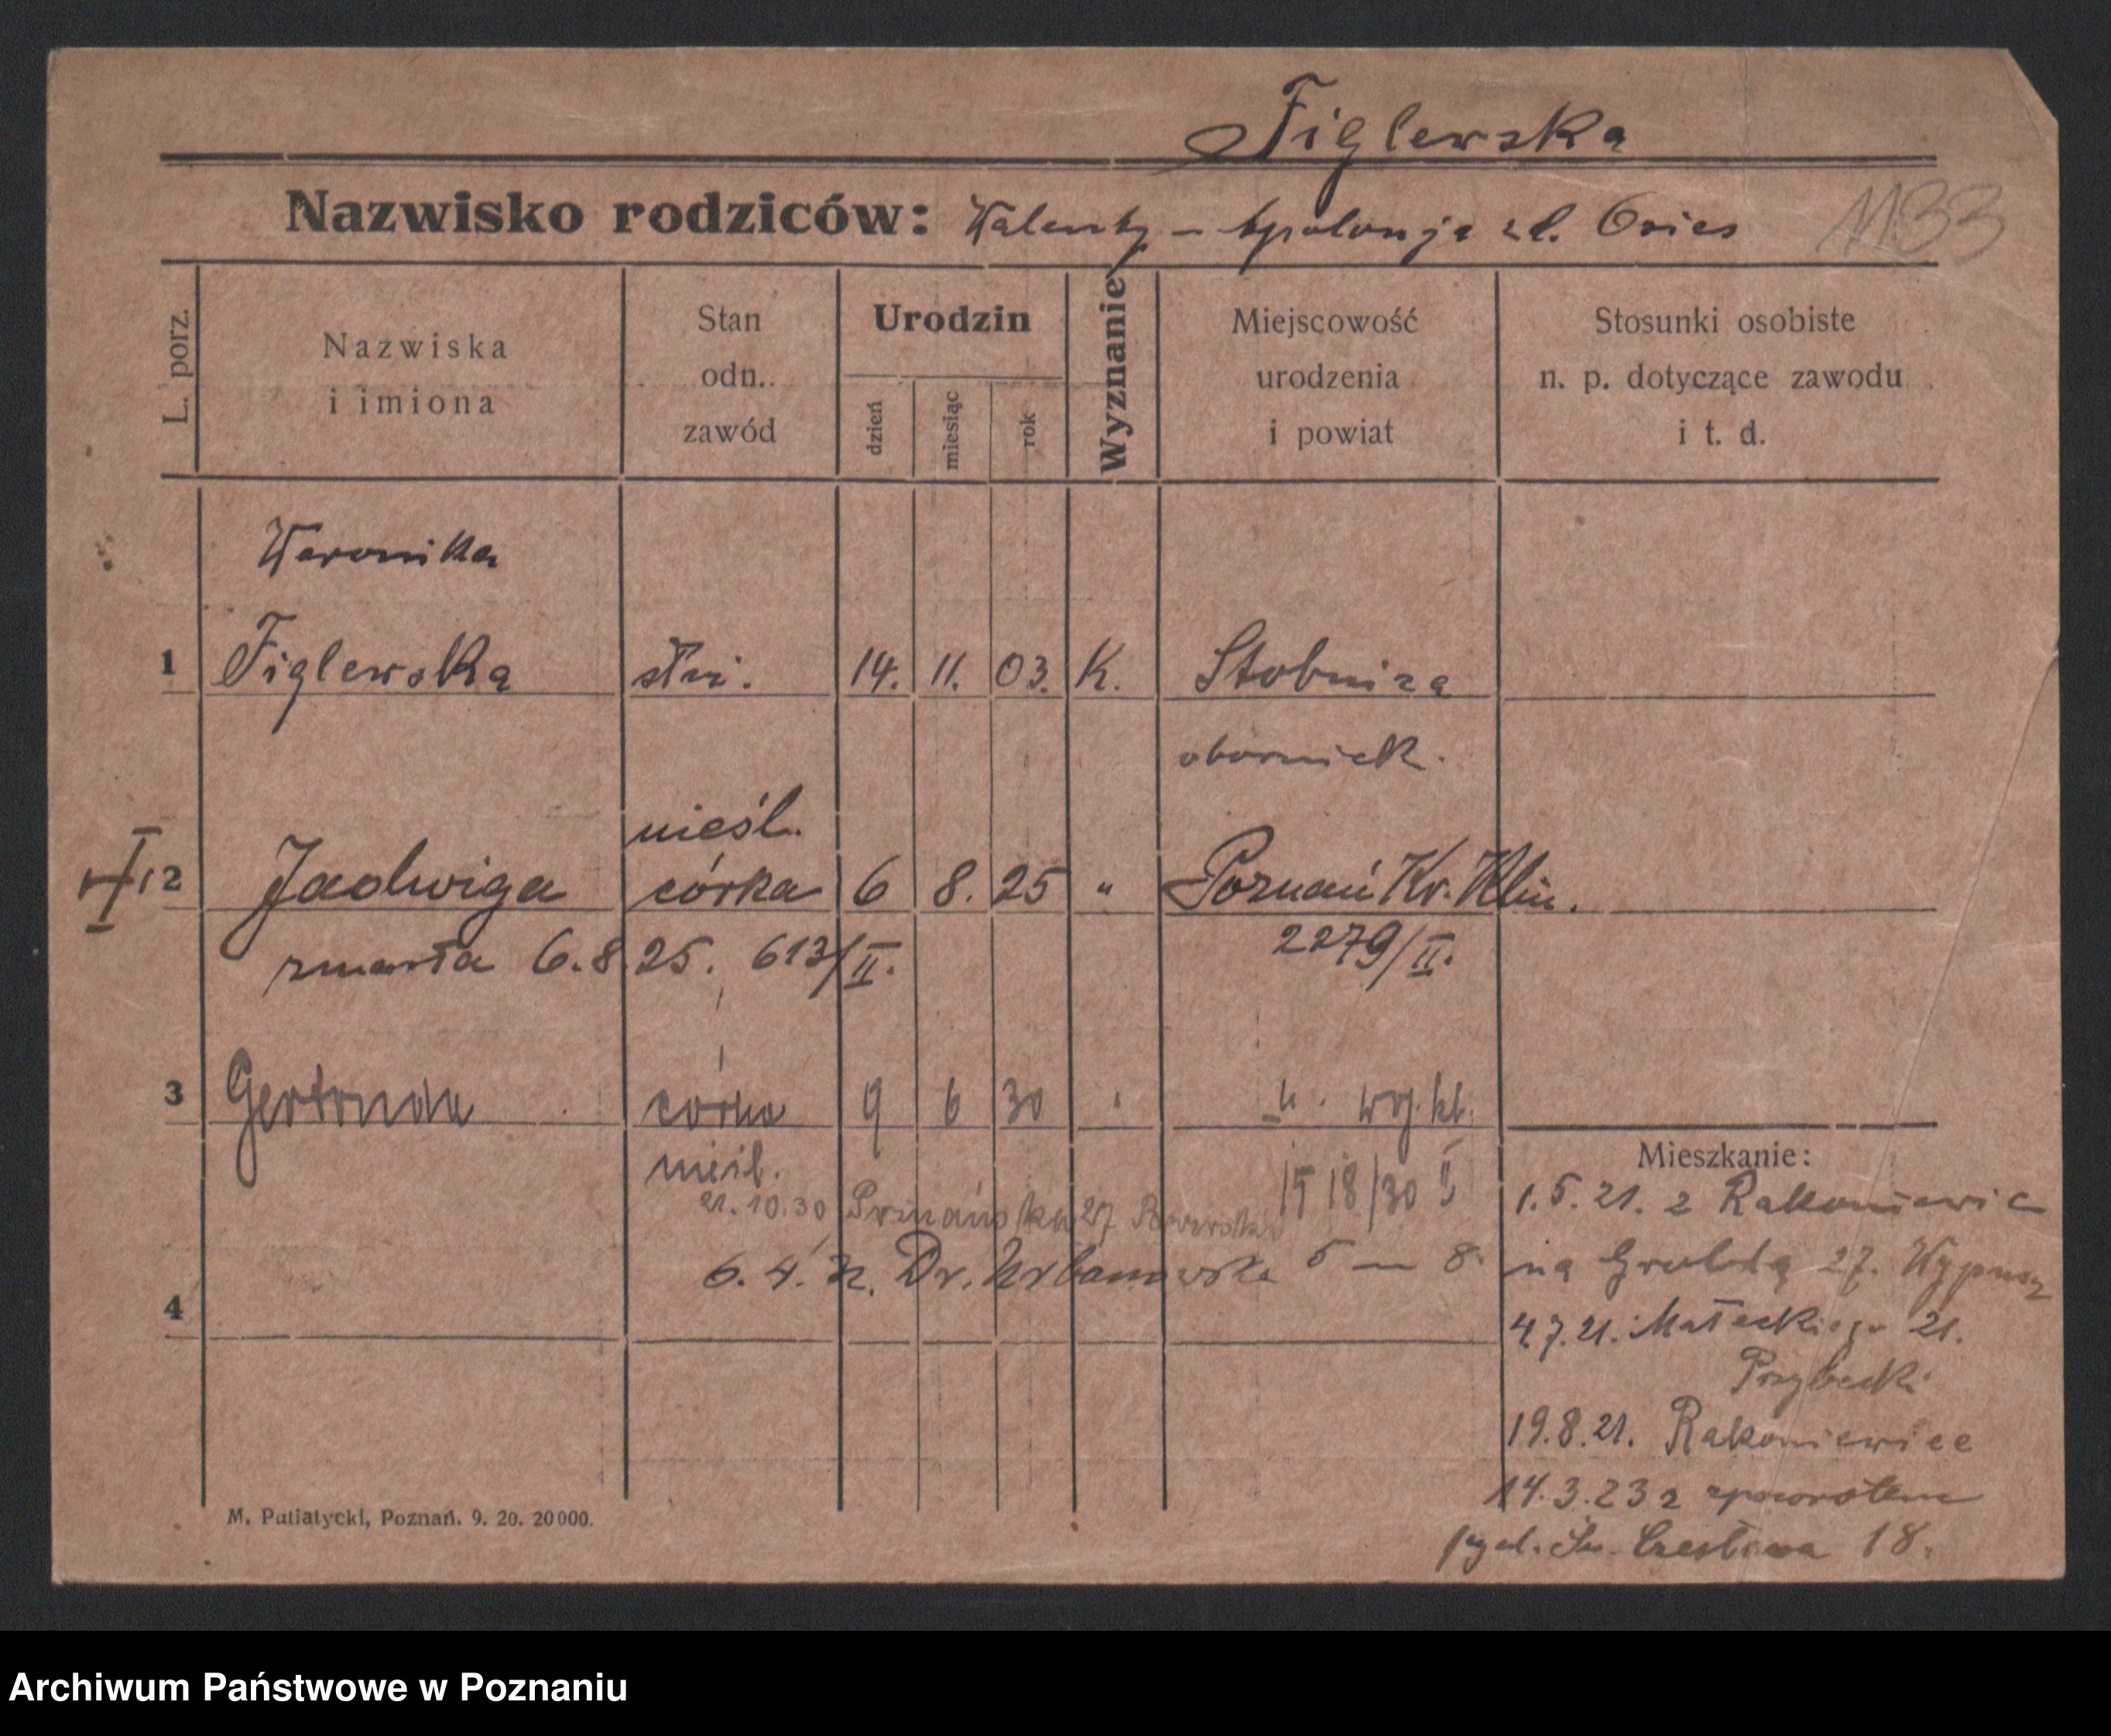 Figlewska
Nazwisko rodziców: Walenty – Apolonja zd.
1133
L. porz.
Nazwiska
i imiona
Stan
odn.
zawód
Urodzin
dzień
miesiąc
rok
Wyznanie
Miejscowość
urodzenia
i powiat
Stosunki osobiste
n. p. dotyczące zawodu
i t. d.
Weronika
1 Figlewska słu. 14. 11. 03. K. Stobnica
obornick.
nieśl.
2 Jadwiga córka 6 8. 25 " Poznań Kr. Klin.
zmarła 6.8.25. 613/II. 2279/II.
3 Gertruda córka 9 6 30 " woj. kl.
nieśl. 1518/30 II
21.10.30 Poznańska 27
6.4.32. Dr. Urbanowska 5 – 8
4
Mieszkanie:
1.5.21. z Rakoniewic
na Groblą 27.
4.7.21. Małeckiego 21.
Przybecki
19.8.21. Rakoniewice
14.3.23 z zpowrotem
Św. Czesława 18.
M. Putiatycki, Poznań. 9. 20. 20000.
Archiwum Państwowe w Poznaniu